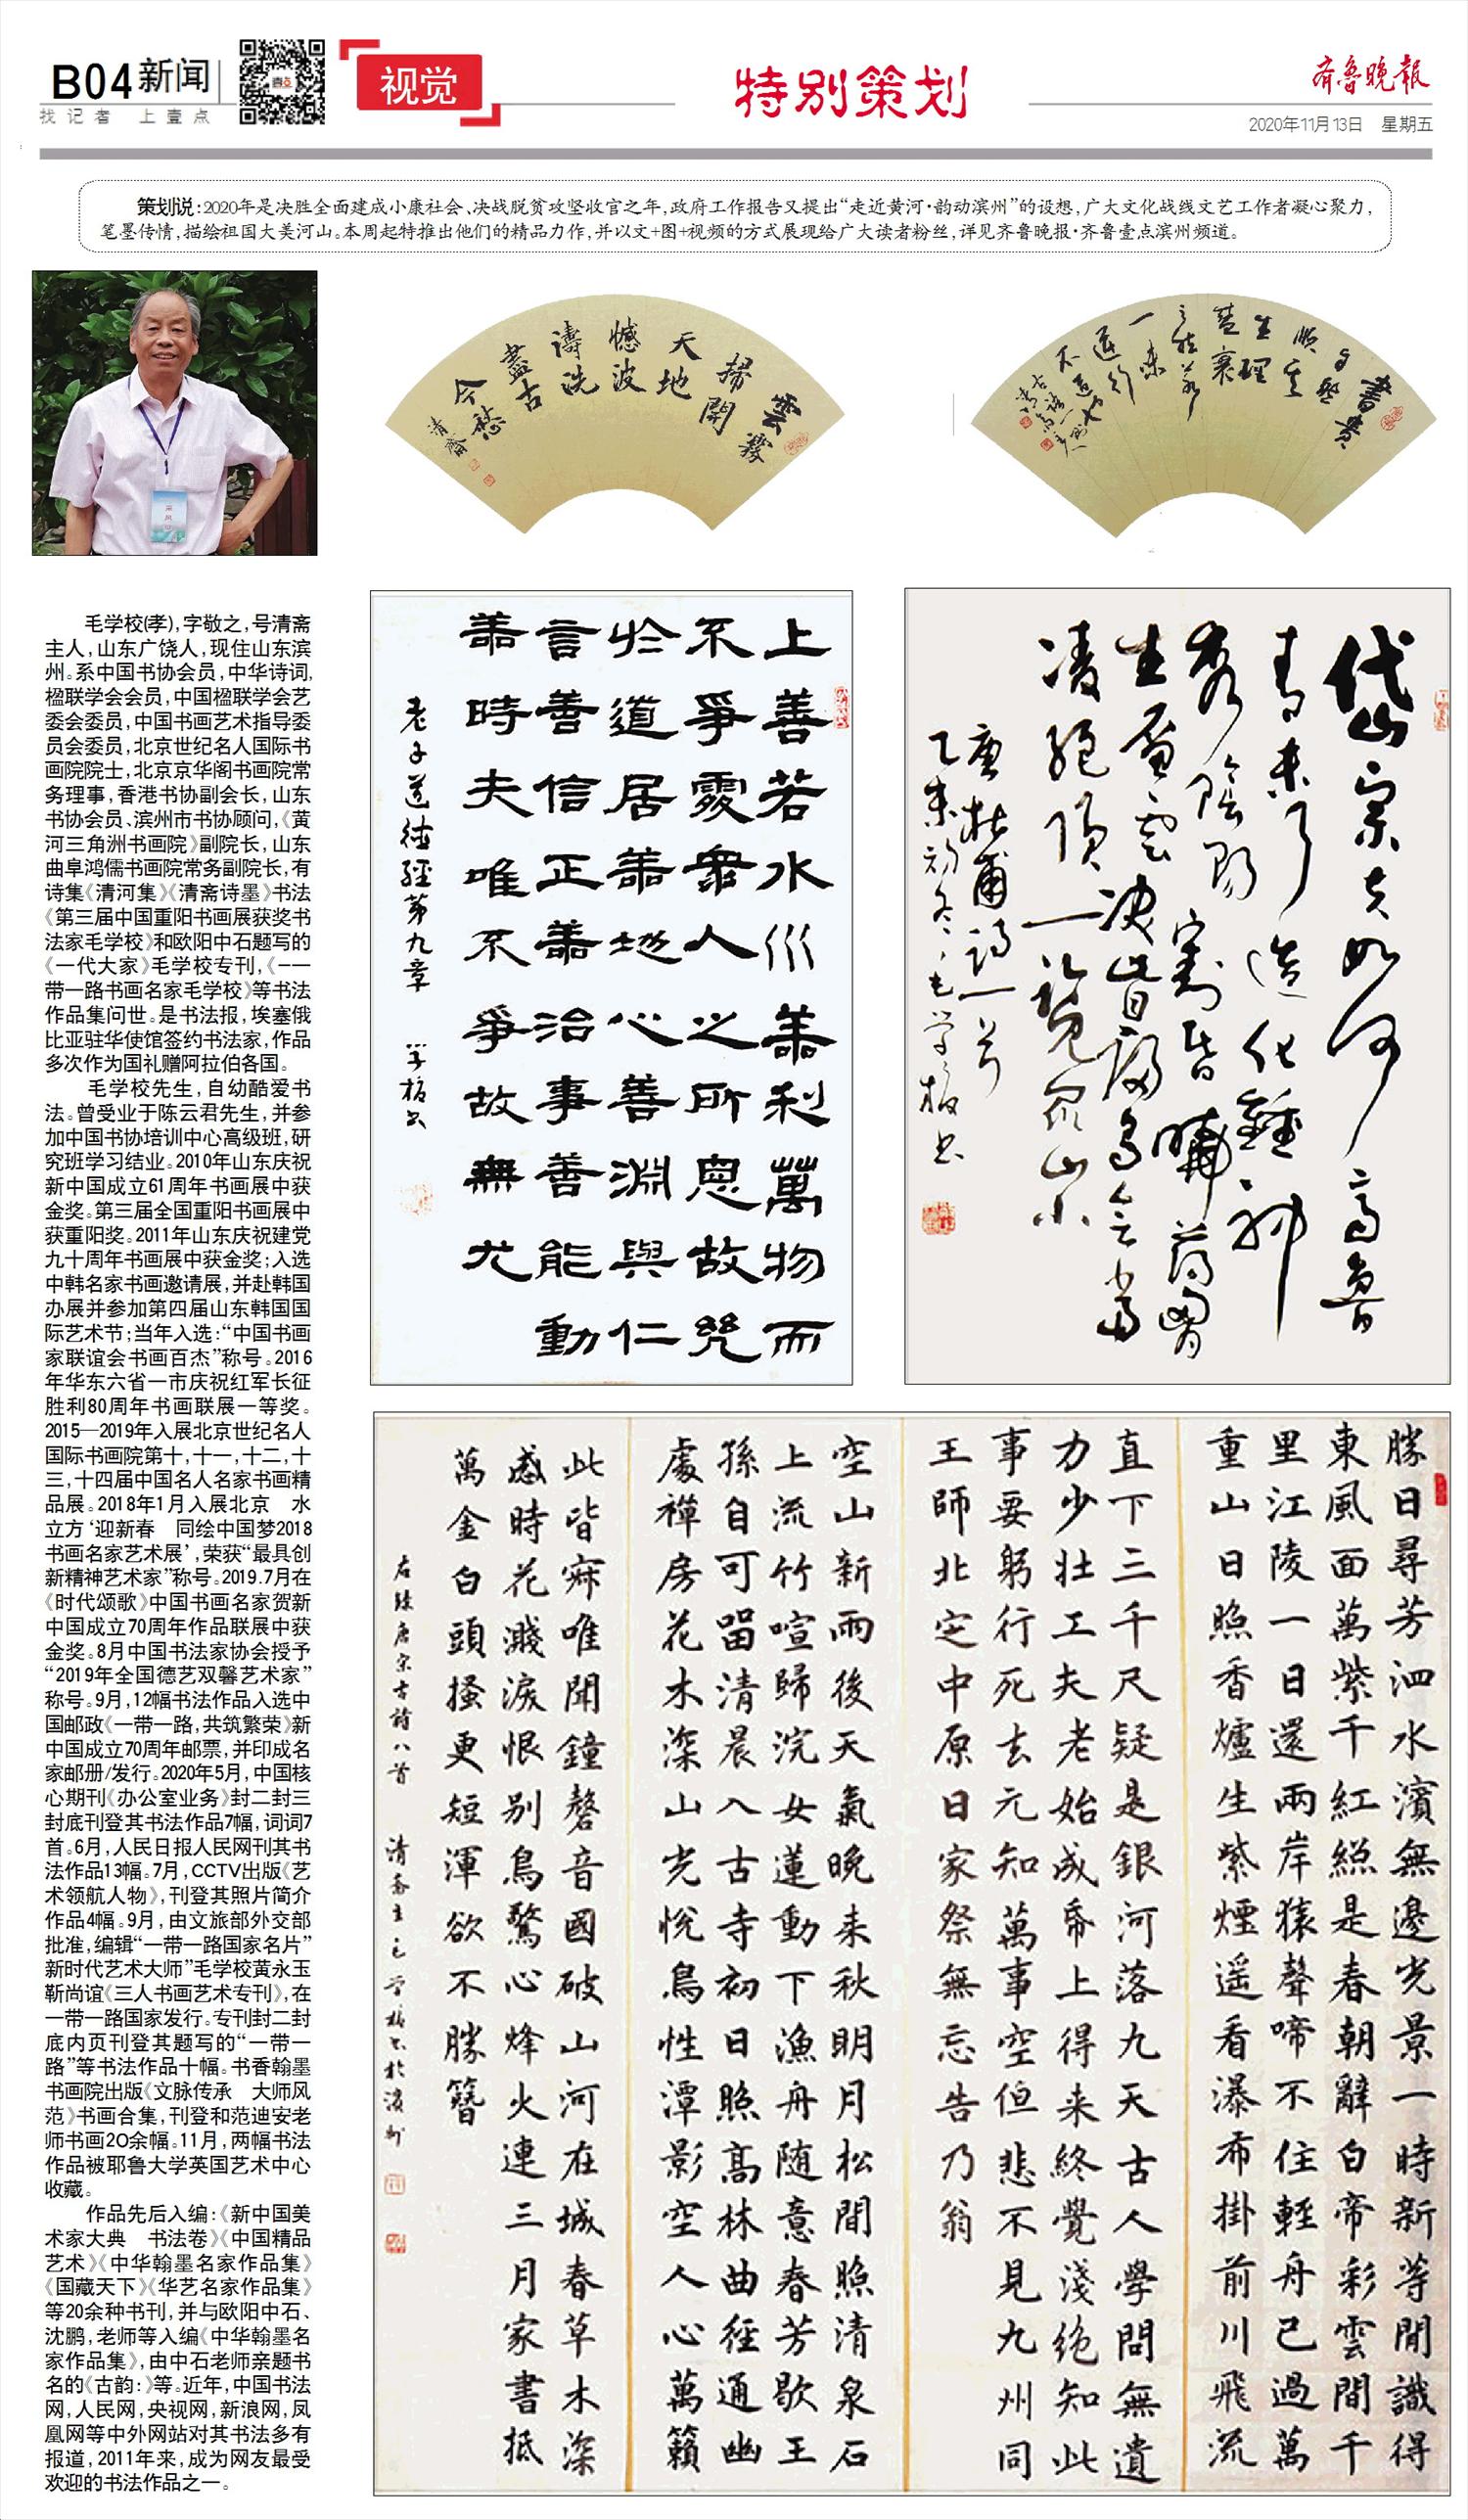 B04 新闻
找记者 上壹点
视觉
特别策划
齐鲁晚报
2020年11月13日 星期五
策划说:2020年是决胜全面建成小康社会、决战脱贫攻坚收官之年,政府工作报告又提出“走近黄河·韵动滨州”的设想,广大文化战线文艺工作者凝心聚力,
笔墨传情,描绘祖国大美河山。本周起特推出他们的精品力作,并以文+图+视频的方式展现给广大读者粉丝,详见齐鲁晚报·齐鲁壹点滨州频道。
毛学校(孝),字敬之,号清斋
主人,山东广饶人,现住山东滨
州。系中国书协会员,中华诗词,
楹联学会会员,中国楹联学会艺
委会委员,中国书画艺术指导委
员会委员,北京世纪名人国际书
画院院士,北京京华阁书画院常
务理事,香港书协副会长,山东
书协会员、滨州市书协顾问,《黄
河三角洲书画院》副院长,山东
曲阜鸿儒书画院常务副院长,有
诗集《清河集》《清斋诗墨》书法
《第三届中国重阳书画展获奖书
法家毛学校》和欧阳中石题写的
《一代大家》毛学校专刊,《一一
带一路书画名家毛学校》等书法
作品集问世。是书法报,埃塞俄
比亚驻华使馆签约书法家,作品
多次作为国礼赠阿拉伯各国。
毛学校先生,自幼酷爱书
法。曾受业于陈云君先生,并参
加中国书协培训中心高级班,研
究班学习结业。2010年山东庆祝
新中国成立61周年书画展中获
金奖。第三届全国重阳书画展中
获重阳奖。2011年山东庆祝建党
九十周年书画展中获金奖;入选
中韩名家书画邀请展,并赴韩国
办展并参加第四届山东韩国国
际艺术节;当年入选:“中国书画
家联谊会书画百杰”称号。2016
年华东六省一市庆祝红军长征
胜利80周年书画联展一等奖。
2015—2019年入展北京世纪名人
国际书画院第十,十一,十二,十
三,十四届中国名人名家书画精
品展。2018年1月入展北京 水
立方‘迎新春 同绘中国梦2018
书画名家艺术展’,荣获“最具创
新精神艺术家”称号。2019.7月在
《时代颂歌》中国书画名家贺新
中国成立70周年作品联展中获
金奖。8月中国书法家协会授予
“2019年全国德艺双馨艺术家”
称号。9月,12幅书法作品入选中
国邮政《一带一路,共筑繁荣》新
中国成立70周年邮票,并印成名
家邮册/发行。2020年5月,中国核
心期刊《办公室业务》封二封三
封底刊登其书法作品7幅,词词7
首。6月,人民日报人民网刊其书
法作品13幅。7月,CCTV出版《艺
术领航人物》,刊登其照片简介
作品4幅。9月,由文旅部外交部
批准,编辑“一带一路国家名片”
新时代艺术大师”毛学校黄永玉
靳尚谊《三人书画艺术专刊》,在
一带一路国家发行。专刊封二封
底内页刊登其题写的“一带一
路”等书法作品十幅。书香翰墨
书画院出版《文脉传承 大师风
范》书画合集,刊登和范迪安老
师书画20余幅。11月,两幅书法
作品被耶鲁大学英国艺术中心
收藏。
作品先后入编:《新中国美
术家大典 书法卷》《中国精品
艺术》《中华翰墨名家作品集》
《国藏天下》《华艺名家作品集》
等20余种书刊,并与欧阳中石、
沈鹏,老师等入编《中华翰墨名
家作品集》,由中石老师亲题书
名的《古韵:》等。近年,中国书法
网,人民网,央视网,新浪网,凤
凰网等中外网站对其书法多有
报道,2011年来,成为网友最受
欢迎的书法作品之一。
雲霧
掃開
天地
憾波
濤洗
盡古
今愁
清齋
書貴
上善若水巛善利萬物而
不爭處衆人之所惡故幾
於道居善地心善淵與善仁
言善信正善治事善能動
善時夫唯不爭故無尤
老子道德經第九章 學校書
岱宗夫如何 齊魯
青未了 造化鍾神
秀陰陽割昏曉 蕩胸
生層雲決眥歸鳥會當
凌絕頂一覽眾山小
唐杜甫詩一首
乙未初冬毛学校书
勝日尋芳泗水濱無邊光景一時新等閒識得
東風面萬紫千紅總是春朝辭白帝彩雲間千
里江陵一日還兩岸猿聲啼不住輕舟已過萬
重山日照香爐生紫煙遥看瀑布掛前川飛流
直下三千尺疑是銀河落九天古人學問無遺
力少壯工夫老始成帋上得来終覺淺絶知此
事要躬行死去元知萬事空但悲不見九州同
王師北定中原日家祭無忘告乃翁
空山新雨後天氣晚来秋明月松間照清泉石
上流竹喧歸浣女蓮動下漁舟随意春芳歇王
孫自可留清晨入古寺初日照高林曲徑通幽
處禪房花木深山光悅鳥性潭影空人心萬籟
此皆寂唯聞鐘磬音國破山河在城春草木深
感時花濺淚恨別鳥驚心烽火連三月家書抵
萬金白頭搔更短渾欲不勝簪
右録唐宋古詩八首 清齋主人学校書於濱州